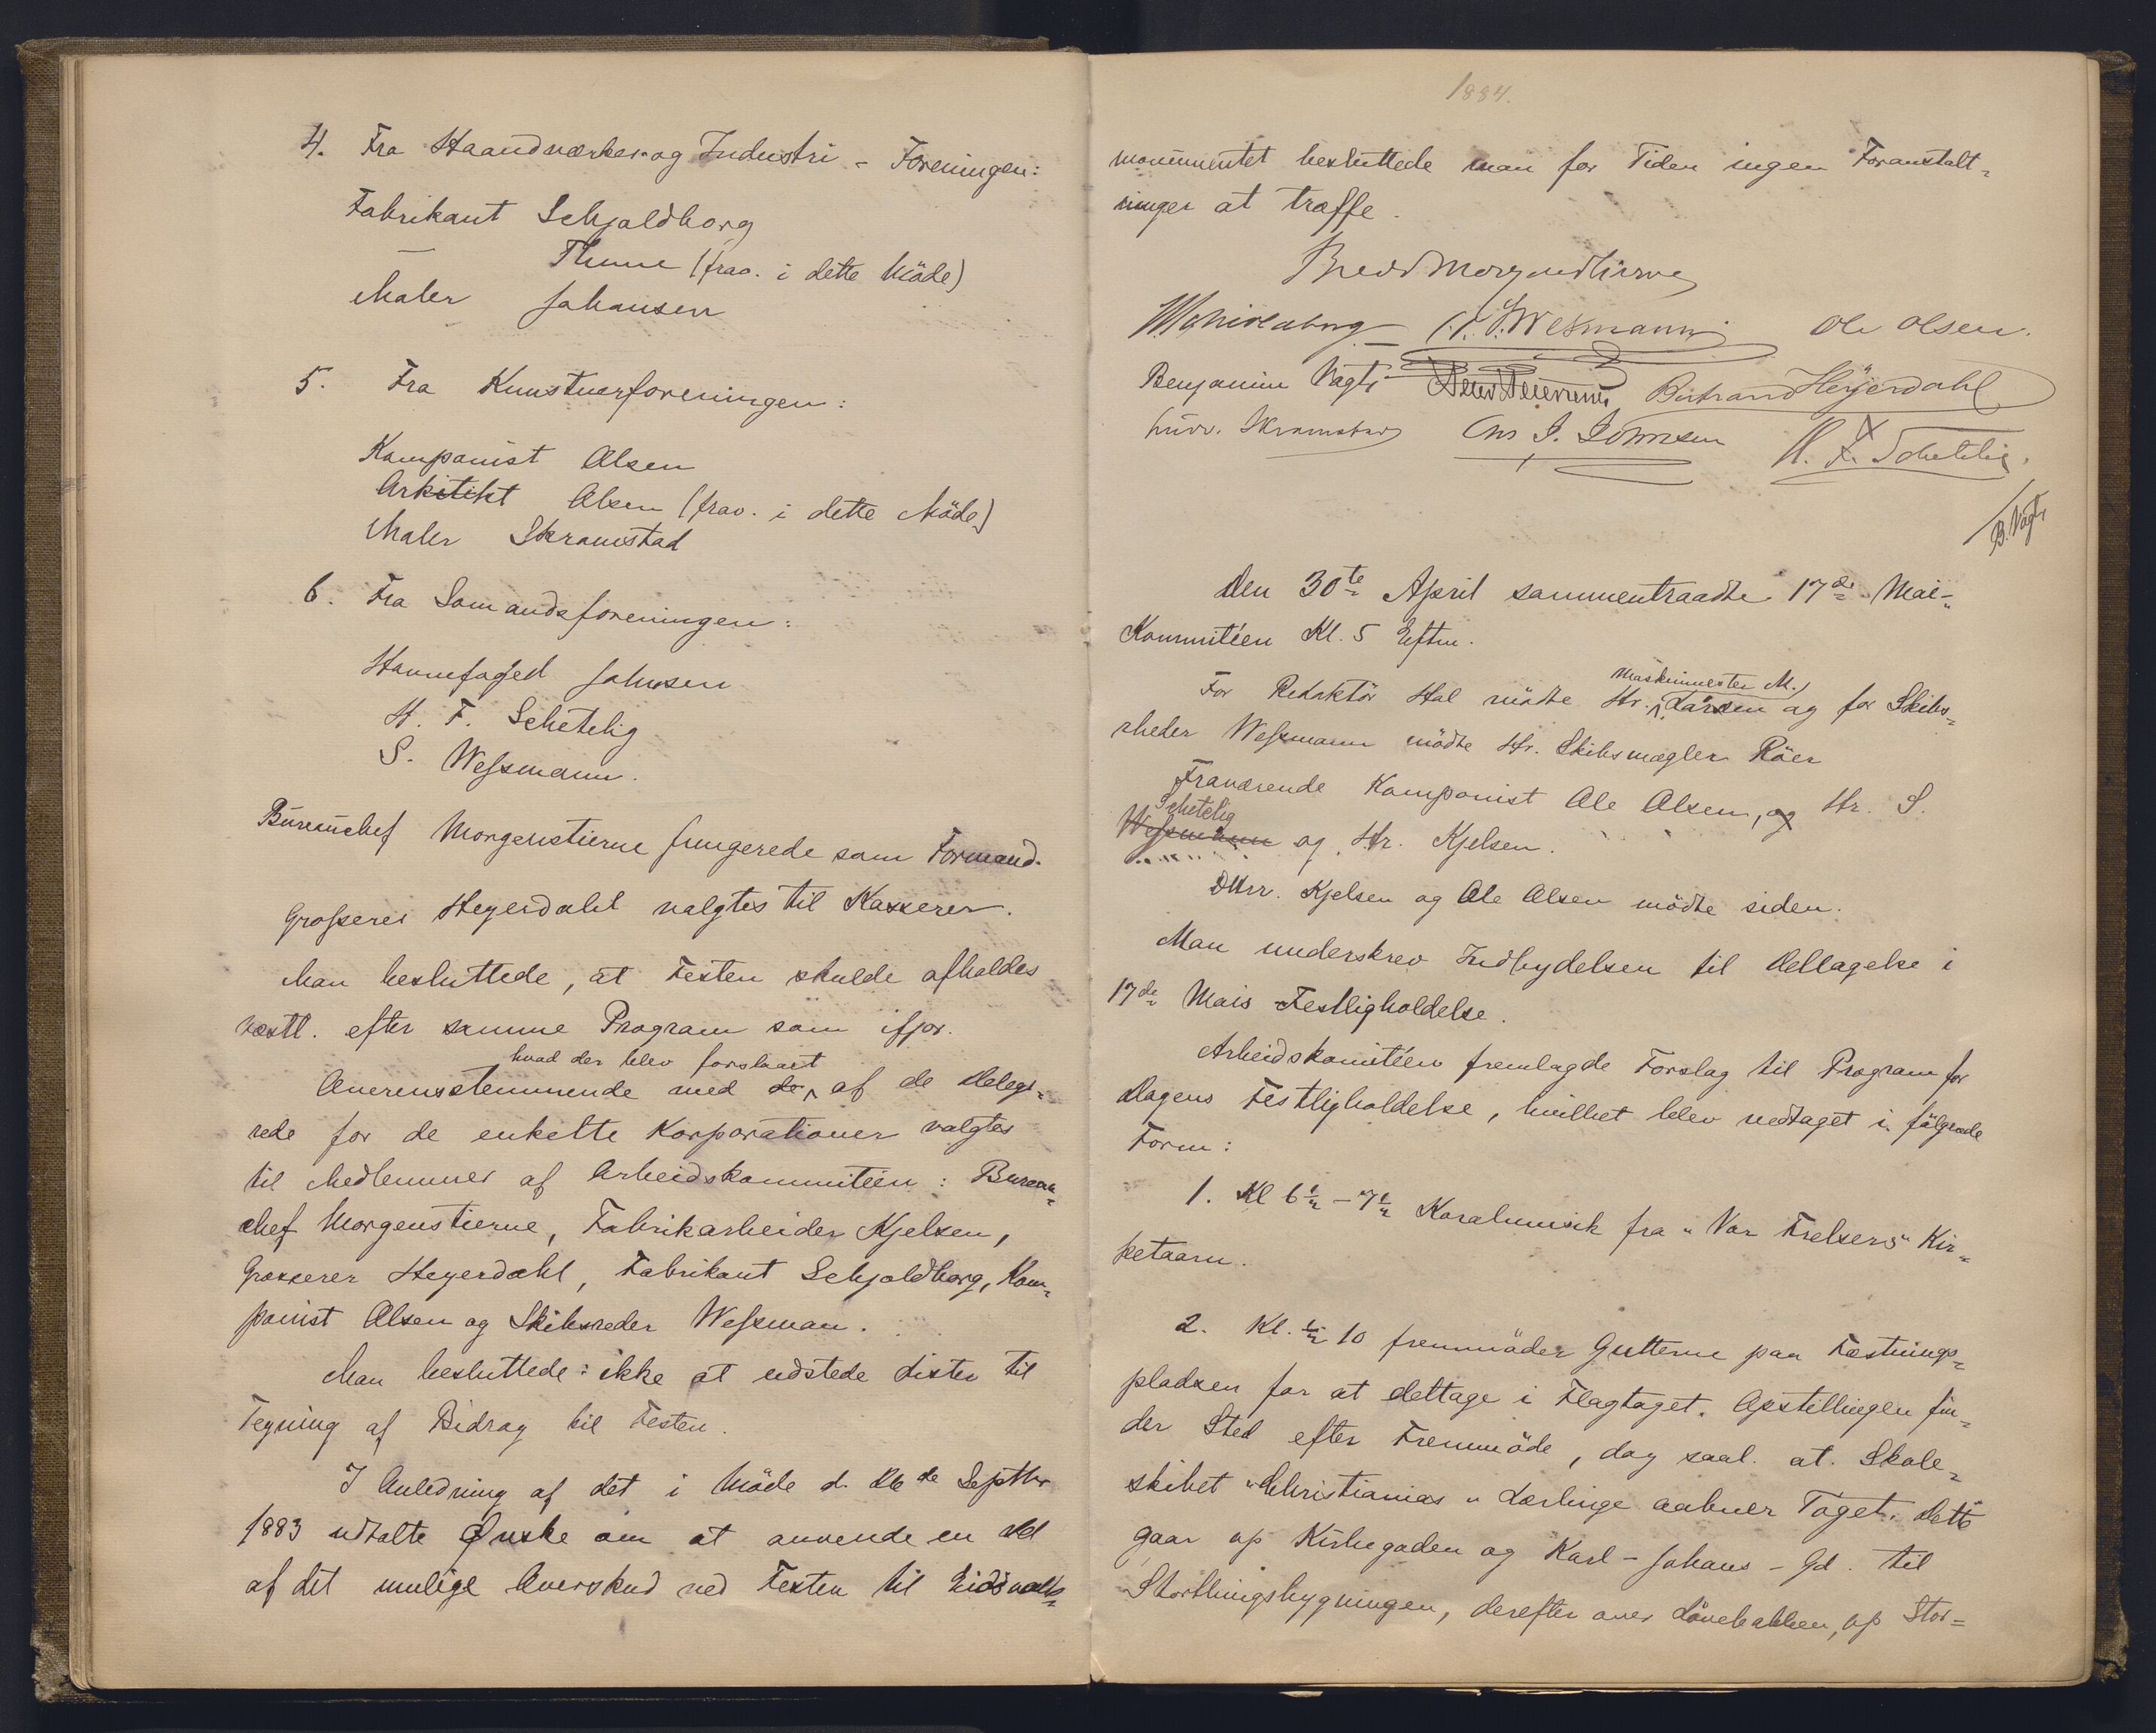 4. Fra Haandværker og Industri - Foreningen:
Fabrikant Schjoldborg
— Thune (frav. i dette Möde)
Maler Johansen
5. Fra Kunstnerforeningen:
Komponist Olsen
Arkitekt Olsen (frav. i dette Möde)
Maler Skramstad
6. Fra Sömandsforeningen:
Havnefoged Johnsen
H. F. Schetelig
S. Wessmann.
Bureauchef Morgenstierne fungerede som Formand.
Grosserer Heyerdahl valgtes til Kasserer.
Man besluttede, at Festen skulde afholdes
væstl. efter samme Program som ifjor.
hvad der blev forslaaet
Overensstemmende med de af de delege-
rede for de enkelte Korporationer valgtes
til Medlemmer af Arbeidskommitéen: Bureau-
chef Morgenstierne, Fabrikarbeider Kjelsen,
Grosserer Heyerdahl, Fabrikant Schjoldborg, Kom-
ponist Olsen og Skibsreder Wessman.
Man besluttede: ikke at udstede Lister til
Tegning af Bidrag til Festen.
I Anledning af det i Möde d. 26de Septbr
1883 udtalte Ønske om at anvende en Del
af det mulige Overskud ved Festen til Eidsvolds-
1884.
monumentet besluttede man for Tiden ingen Foranstalt-
ninger at træffe.
Bredo Morgenstierne
W Schjoldborg S. Wesmann Ole Olsen.
Benjamin Vogt Bertrand Heyerdahl
Skramstad Chr J. Johnsen H. F. Schetelig.
B. Vogt
Den 30te April sammentraadte 17de Mai-
Kommitéen Kl. 5 Eftm.
Maskinmester M.
For Redaktör Hol mödte Hr. Larsen og for Skibs-
rheder Wessmann mödte Hr. Skibsmægler Röer
Fraværende Komponist Ole Olsen, og Hr. S.
Schetelig
Wessmann og Hr. Kjelsen.
DHrr. Kjelsen og Ole Olsen mödte siden.
Man underskrev Indbydelsen til Deltagelse i
17de Mais Festligholdelse.
Arbeidskomitéen fremlagde Forslag til Program for
Dagens Festligholdelse, hvilket blev vedtaget i fölgende
Form:
1. Kl 6½ - 7½ Koralmusik fra "Vor Frelsers" Kir-
ketaarn.
2. Kl. ½ 10 fremmöder Gutterne paa Fæstnings-
pladsen for at deltage i Flagtoget. Opstillingen fin-
der Sted efter Fremmöde, dog saal. at Skole-
skibet "Christianias" Lærlinge aabner Toget. Dette
gaar op Kirkegaden og Karl-Johans-Gd. til
Storthingsbygningen, derefter over Lövebakken, op Stor-